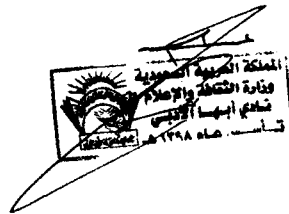 المملكة العربية السعودية
وزارة الثقافة والإعلام
نادي أبها الأدبي
تأسس عام ١٣٩٨ هـ